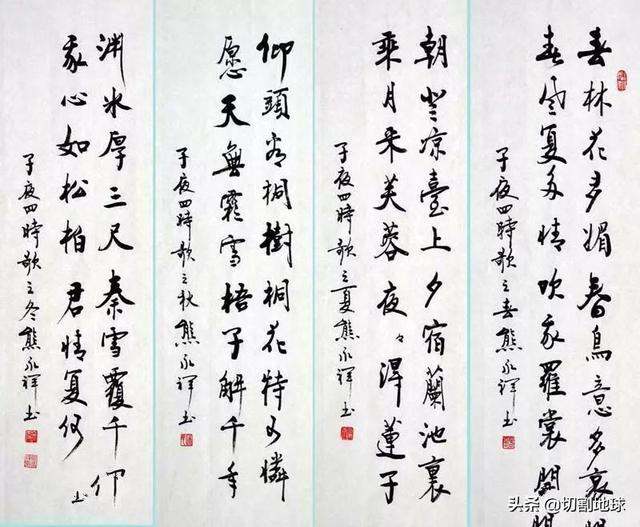 春林花多媚春鳥意多哀
春风复多情吹我羅裳開
子夜四時歌之春熊永书
朝登凉臺上夕宿蘭池裏
乘月采芙蓉夜々得蓮子
子夜四時歌之夏熊永书
仰頭看桐樹桐花特可憐
愿天無霜雪梧子解千年
子夜四時歌之秋熊永书
渊冰厚三尺素雪覆千
我心如松柏君情复何
子夜四時歌之冬熊永书
头条 @切割地球